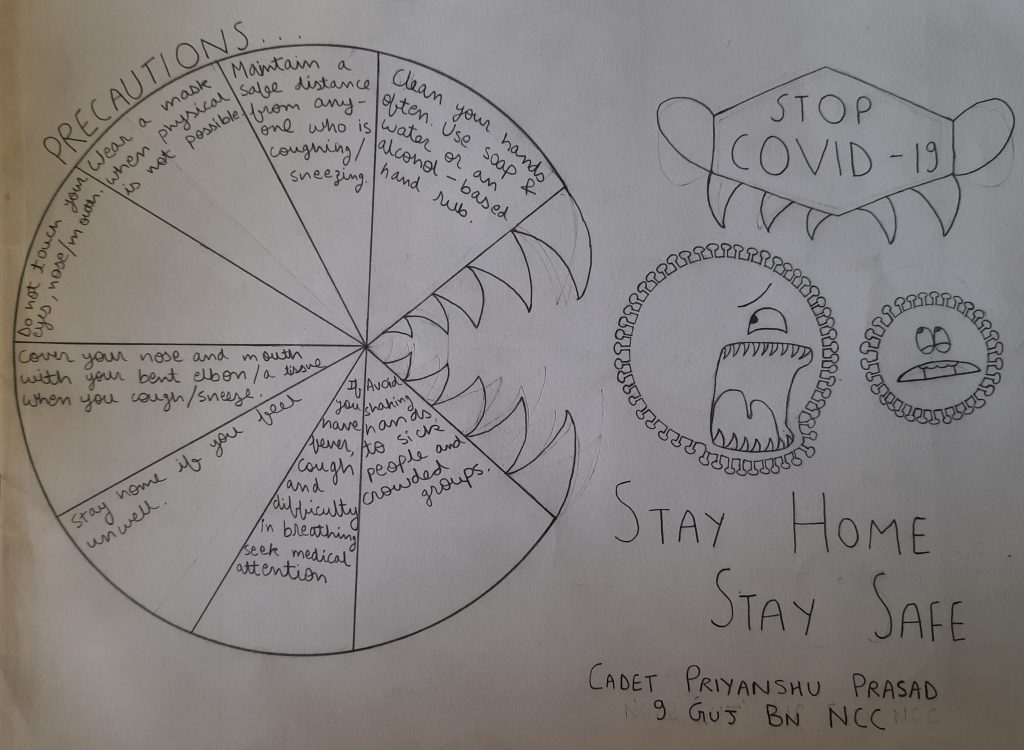 PRECAUTIONS...
Clean your hands
often. Use soap &
water or an
alcohol-based
hand rub.
Maintain a
safe distance
from any-
one who is
coughing/
sneezing.
Wear a mask
when physical
is not possible.
Do not touch your
eyes, nose/mouth.
Cover your nose and mouth
with your bent elbon/a tissue
when you cough/sneeze.
Stay home if you feel
unwell.
If
you
have
fever,
cough
and
difficulty
in breathing
seek medical
attention
Avoid
shaking
hands
to sick
people and
crowded
groups.
STOP
COVID-19
STAY HOME
STAY SAFE
CADET PRIYANSHU PRASAD
9 GUJ BN NCC